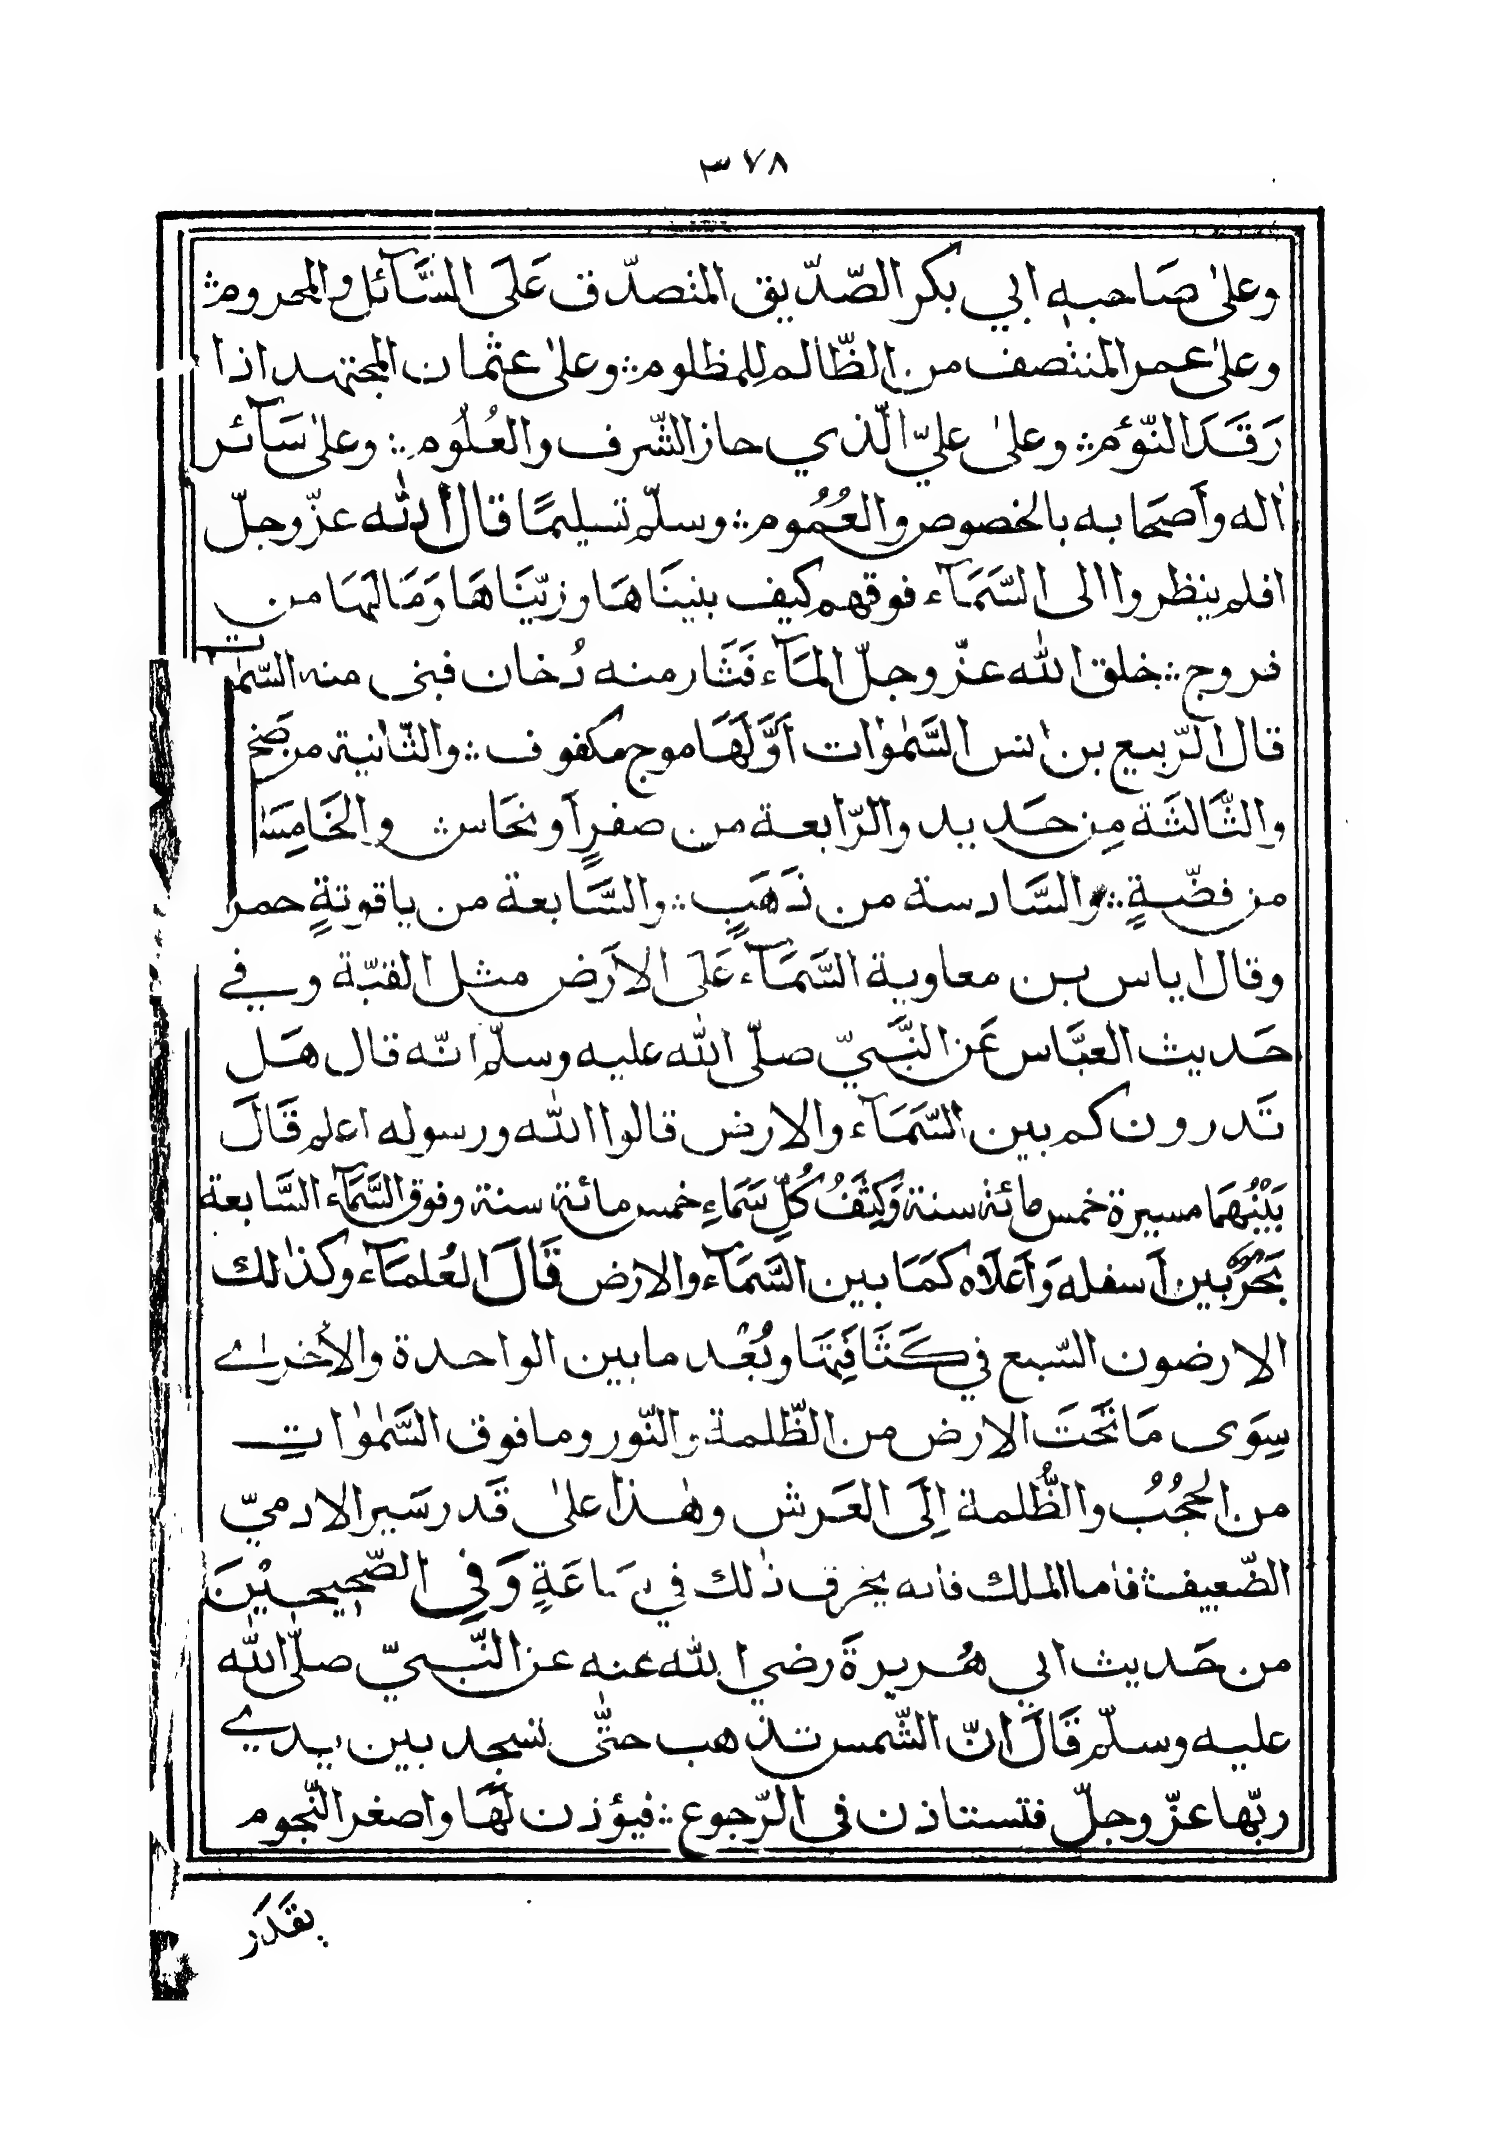 ٣٧٨
وعلىٰ صَاحبه ابي بكر الصّدّيق المتصدّق عَلَى السَّآئل والمحروم ∴
وعلىٰ عمر المنتصف من الظّالم للمظلوم ∴ وعلىٰ عثمان المجتهد اذا
رَقَدَ النّوٌم ∴ وعلىٰ عليّ الّذي حاز الشّرف والعُلُوم ∴ وعلىٰ سَآئر
اٰله وأَصحابه بالخصوص والعُمُوم ∴ وسلّم تسليمًا قَالَ اللّٰه عزّ وجلّ
افلم ينظروا الى السَّمَآء فوقهم كيف بنينَاهَا وزيّنَاهَا وَمَا لهَا من
فروج ∴ خلق اللّٰه عزّ وجلّ المَآء فَثَار منه دُخان فبنى منه السّمٰوٰت
قال الرّبيع بن انس السَّمٰوٰات أَوَّلَهَا موج مكفوف ∴ والثّانية من صَخر
والثَّالثَة مِن حَديد والرّابعة من صفرٍ أَو نحَاس ∴ والخَامِسَة
من فضّةٍ ∴ والسَّادسة من ذَهَبٍ ∴ والسَّابعة من ياقوتةٍ حمر
وقال اياس بن معاوية السَّمَآء عَلَى الارَض مثل القبّة وفي
حَديث العبَّاس عَن النَّبيّ صلّى اللّٰه عليه وسلّم انّه قال هَل
تَدرون كم بين السَّمَآء والارض قالوا اللّٰه ورسوله اعلم قَالَ
بَيْنُهمَا مسيرة خمس مائة سنة وَكِثَفُ كُلّ سَمَاءٍ خمس مائة سنة وفوق السَّمَآء السَّابعة
بَحْرٌ بين أَسفله وَأَعلَاه كمَمَا بين السَّمَآء والارض قَالَ العُلمَآء وكذٰلك
الارضون السّبع في كَثَافَتِهَا وبُعْد مابين الواحدة والأخرىٰ
سِوَى مَا تَحْتَ الارض من الظّلمة والنّور وما فوق السَّمٰوٰاتِ
من الحُجُبُ والظُّلمة اِلَى العَرش وهٰذا علىٰ قَدر سَير الادميّ
الضّعيف فاما الملك فانه يخرق ذٰلك في سَاعَةٍ وَفِي الصّحيحيْنَ
من حَديث ابي هُريرةَ رضي اللّٰه عنه عن النّبيّ صلّى اللّٰه
عليه وسلّم قَالَ انّ الشّمس تذهب حتّٰى تسجد بين يدي
ربّها عزّ وجلّ فتستاذن في الرّجوع ∴ فيؤذن لَهَا واصغر النّجوم
بقَدَر